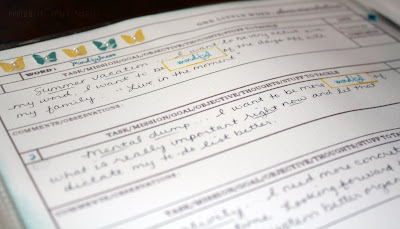 ONE LITTLE WORD
WORD: Mindfulness
TASK/MISSION/GOAL/OBJECTIVE/THOUGHTS/STUFF TO TACKLE
Summer vacation ... I want to
my word. I want to be mindful of the days off with
my family. ... Live in the moment.
COMMENTS/OBSERVATIONS:
TASK/MISSION/GOAL/OBJECTIVE/THOUGHTS/STUFF TO TACKLE
2 Mental dump... I want to be more mindful of
what is really important right now and let that
dictate my to-do list better.
COMMENTS/OBSERVATIONS:
TASK/MISSION/GOAL/OBJECTIVE/THOUGHTS/STUFF TO TACKLE
I need more concrete
Looking forward
system better